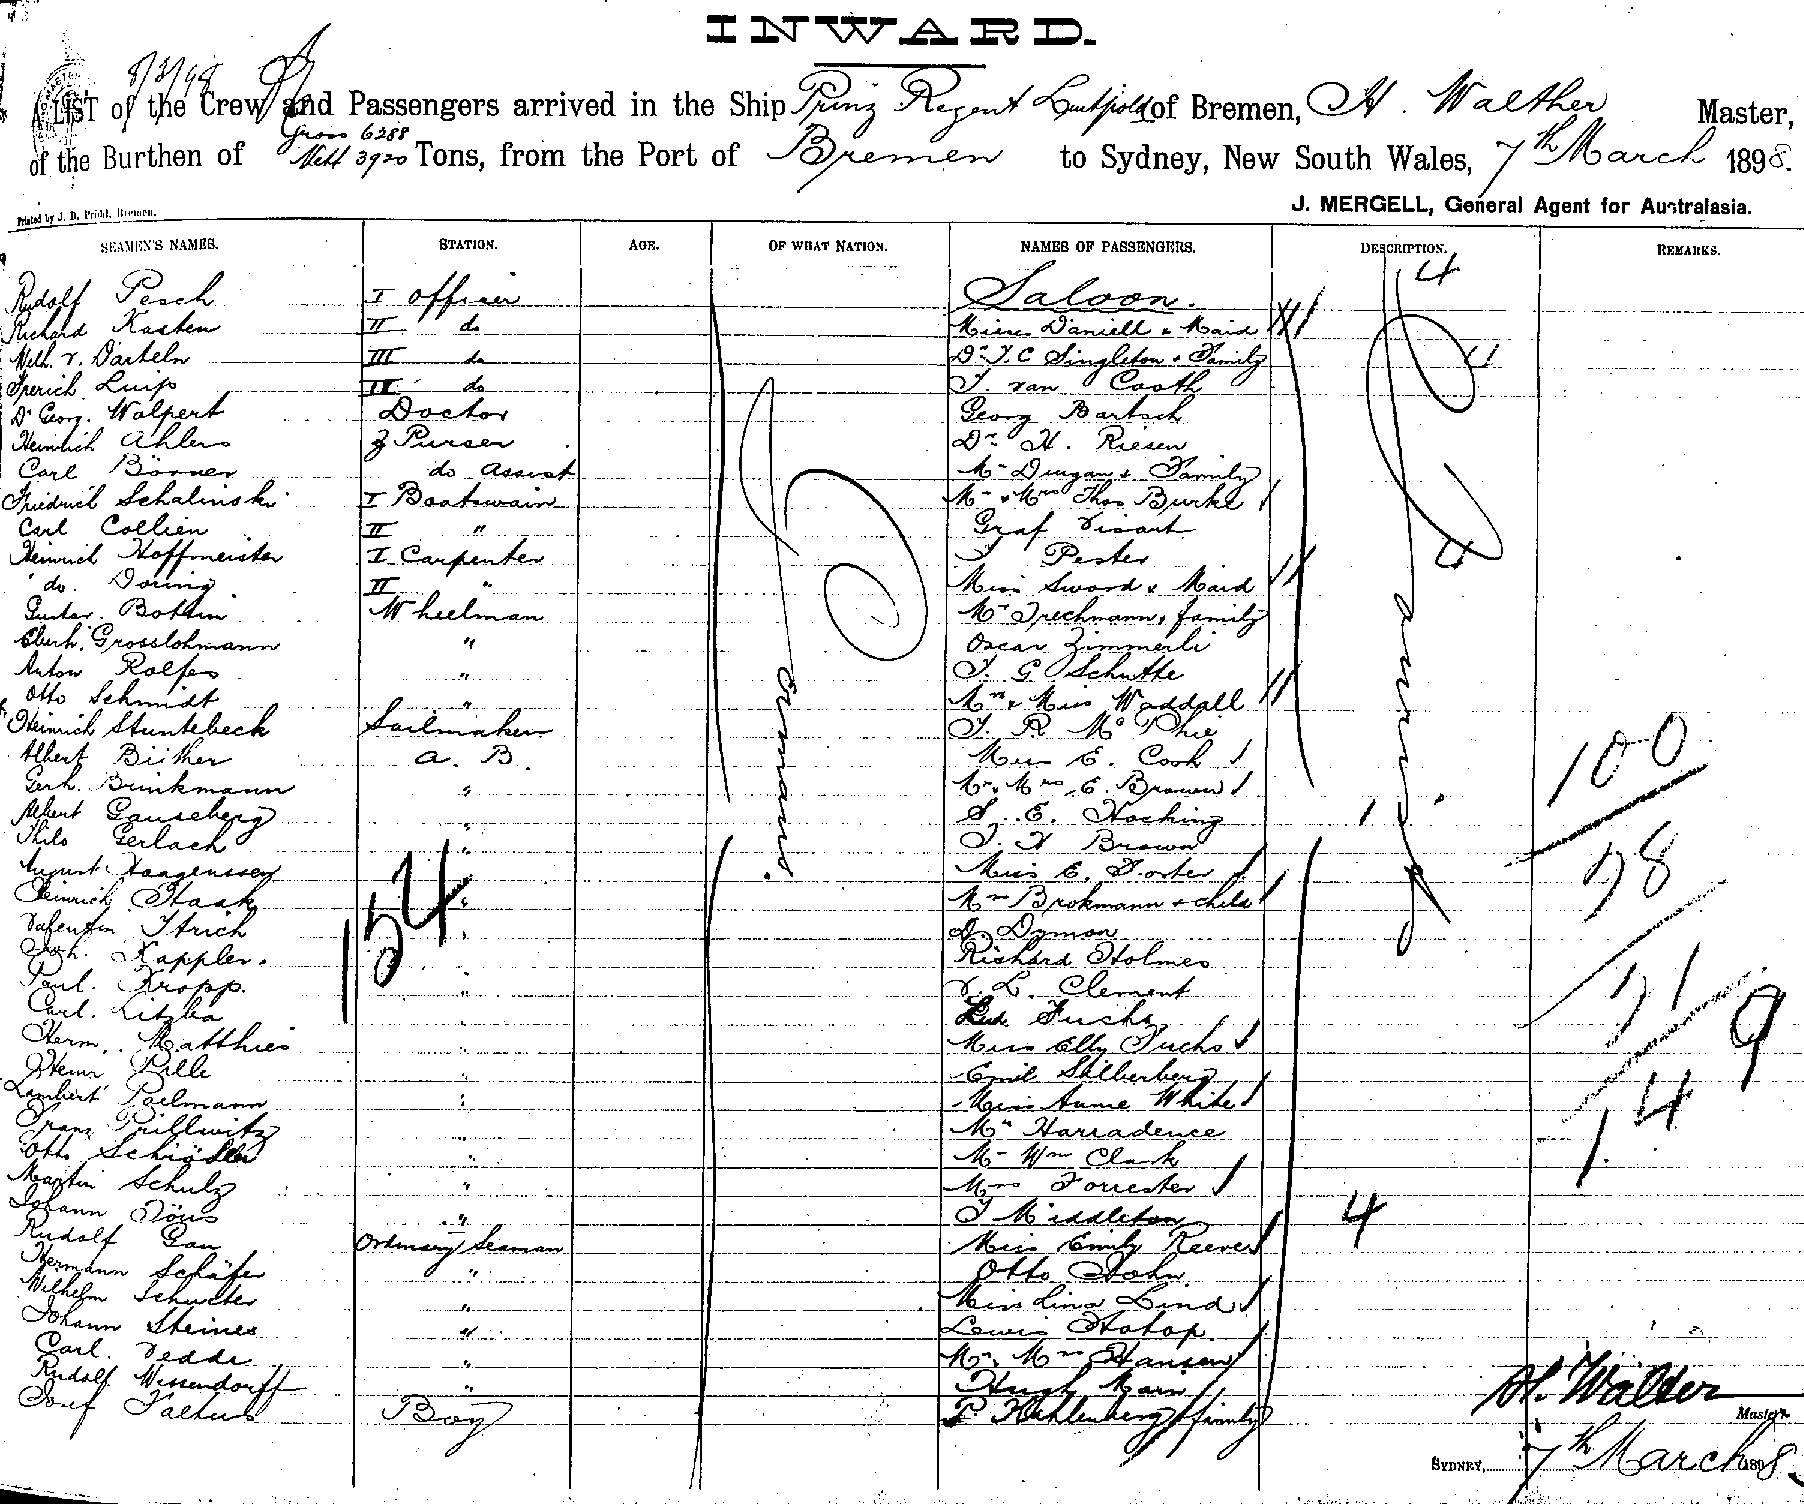 INWARD.
8/3/98
A LIST of the Crew and Passengers arrived in the Ship Prinz Regent Luitpold of Bremen, H. Walther Master,
Gross 6288
of the Burthen of Nett 3920 Tons, from the Port of Bremen to Sydney, New South Wales, 7th March 1898.
Printed by J. D. Bremen.
J. MERGELL, General Agent for Australasia.
SEAMEN'S NAMES. STATION. AGE. OF WHAT NATION. NAMES OF PASSENGERS. DESCRIPTION. REMARKS.
Rudolf Pesch I Officer Saloon. 4
Richard Kasten II do Misses Daniell & Maid
Wilh. v. Darteln III do Dr. J. C Singleton & Family
Luips IV do J. van Cooth
Dr Georg. Walpert Doctor Georg Bartsch
Heinrich Ahlers Purser Dr H. Riesen
Carl Börner do Assist Mr Dungan & Family
Friedrich Schalinski I Boatswain Mr & Mrs Thos Burke
Carl Collien II " Graf
Heinrich Hoffmeister I Carpenter J Pester
do. Doring II " Miss Sword & Maid
Gustav. Wheelman Mr Trechmann & family
Eberh. Grosslohmann " Oscar Zimmerli
Anton Rolfes " J. G Schutte
Otto Schmidt " Mrs & Miss Waddall
Heinrich Stuntebeck Sailmaker J. R. McPhie
Albert Büther A. B. Miss E. Cook
Gerh. Brinkmann " Mr & Mrs E. Brown
Albert Ganseberg " S. E. Hocking
Thilo Gerlach " J. H Brown
August Haagenssen " Miss E. Porter
Heinrich Haak " Mrs Brokmann & child
Valentin Itrich " Dymon
Joh. Kappler. " Richard Holmes
Paul. Kropp. " V. L. Clement
Carl. Litzba " Fuchs
Herm. Matthies " Miss Elly Fuchs
Heinr Rille " Emil Silberberg
Lambert Poelmann " Miss Annie White
Franz Prillwitz " Mr Harradence
Otto " Mr Wm Clark
Martin Schulz " Mrs Forrester
Johann " J Middleton 4
Rudolf Gau Ordinary Seaman Miss Emily Reeves
Hermann Schäfer " Otto Hohn
Wilhelm Schuster " Miss Lina Lind
Johann Steines " Lewis Hotop.
Carl. Vedde " Mr & Mrs Hansen
Rudolf Wissendorff " Hugh
Josef Boy P family
Germans.
Saxonia
154
100
98
91
9
14
H. Walter
Master.
SYDNEY, 7th March 1898.